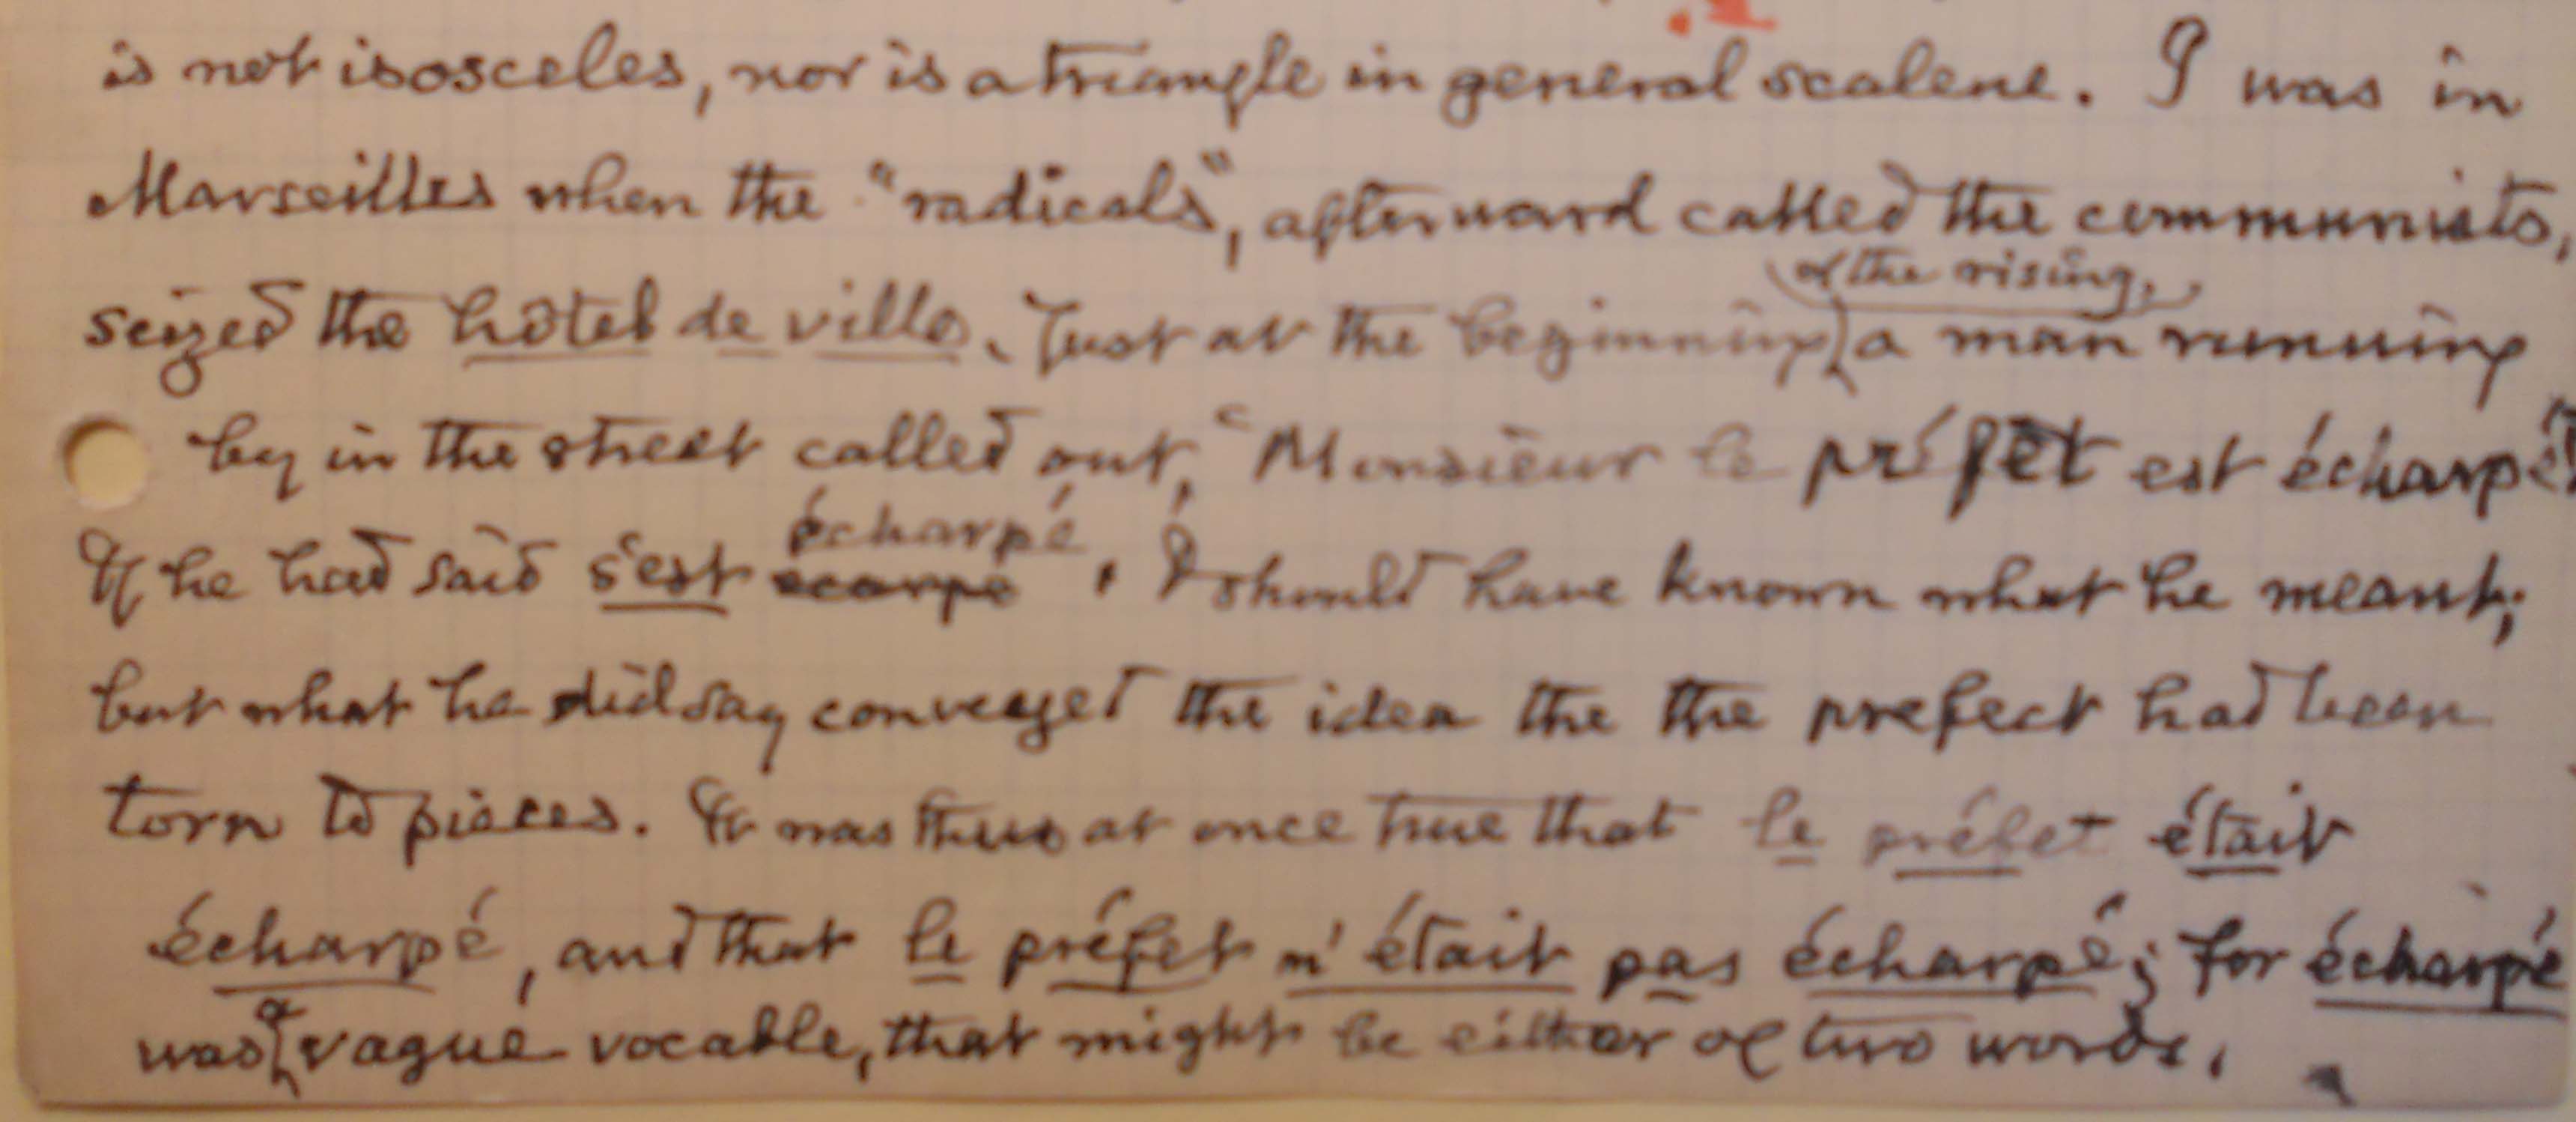 is not isosceles, nor is a triangle in general scalene. I was in
Marseilles when the "radicals", afterward called the communists,
of the rising,
seized the hôtel de ville. Just at the beginning a man running
by in the street called out, "Monsieur le préfet est écharpé"
écharpé
If he had said s'est ecarpé, I should have known what he meant;
but what he did say conveyed the idea the the prefect had been
torn to pieces. It was thus at once true that le préfet était
écharpé, and that le préfet n'était pas écharpé; for écharpé
a
was vague vocable, that might be either of two words.